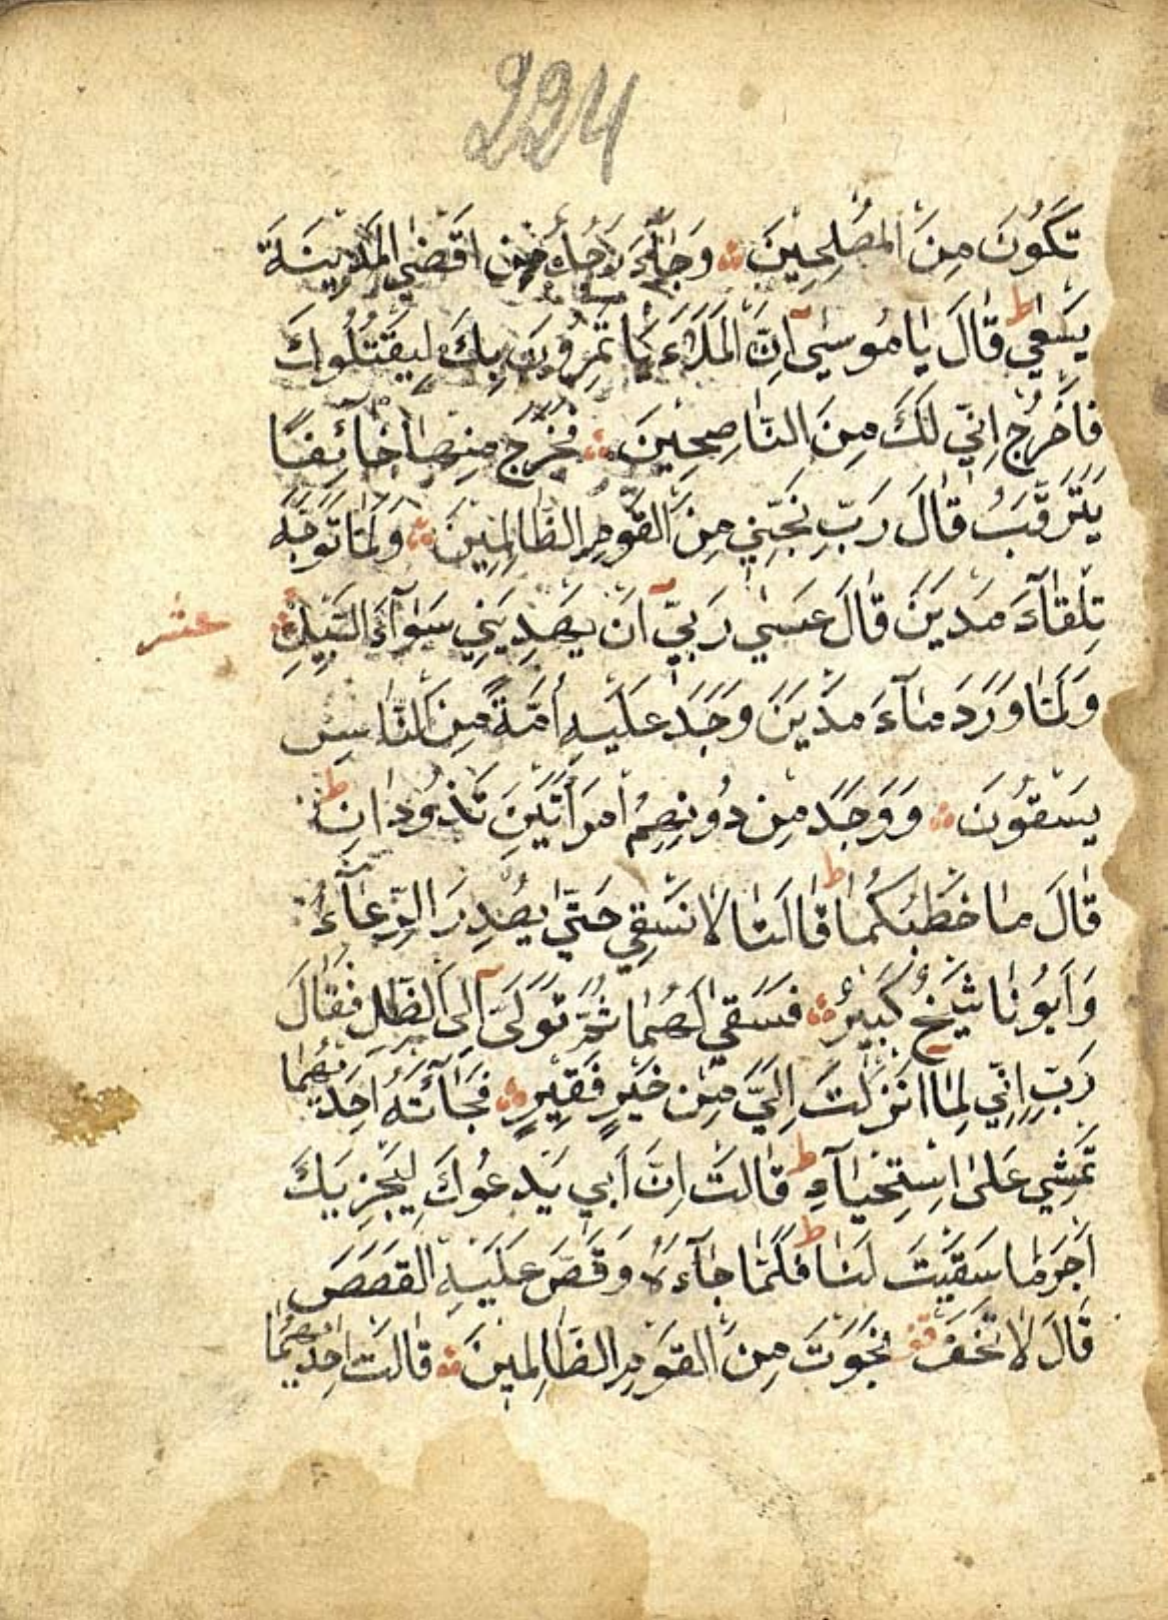 224
تَكُونَ مِنَ الْمُصْلِحِينَ ۞ وَجَآءَ رَجُلٌ مِنْ اَقْصَى الْمَدِينَةِ
يَسْعٰى ط قَالَ يَا مُوسٰىٓ اِنَّ الْمَلَاَ يَاْتَمِرُونَ بِكَ لِيَقْتُلُوكَ
فَاخْرُجْ اِنِّي لَكَ مِنَ النَّاصِحِينَ ۞ فَخَرَجَ مِنْهَا خَائِفًا
يَتَرَقَّبُ قَالَ رَبِّ نَجِّنِي مِنَ الْقَوْمِ الظَّالِمِينَ ۞ وَلَمَّا تَوَجَّهَ
تِلْقَآءَ مَدْيَنَ قَالَ عَسٰى رَبِّيٓ اَنْ يَهْدِيَنِي سَوَآءَ السَّبِيلِ ۞ عشر
وَلَمَّا وَرَدَ مَآءَ مَدْيَنَ وَجَدَ عَلَيْهِ اُمَّةً مِنَ النَّاسِ
يَسْقُونَ ۞ وَوَجَدَ مِنْ دُونِهِمُ امْرَاَتَيْنِ تَذُودَانِ ط
قَالَ مَا خَطْبُكُمَا ط قَالَتَا لَا نَسْقِي حَتّٰى يُصْدِرَ الرِّعَآءُ
وَاَبُونَا شَيْخٌ كَبِيرٌ ۞ فَسَقٰى لَهُمَا ثُمَّ تَوَلّٰىٓ اِلَى الظِّلِّ فَقَالَ
رَبِّ اِنِّي لِمَا اَنْزَلْتَ اِلَيَّ مِنْ خَيْرٍ فَقِيرٌ ۞ فَجَآئَتْهُ اِحْدٰيهُمَا
تَمْشِي عَلَى اسْتِحْيَآءٍ ط قَالَتْ اِنَّ اَبِي يَدْعُوكَ لِيَجْزِيَكَ
اَجْرَ مَا سَقَيْتَ لَنَا ط فَلَمَّا جَآءَهُ وَقَصَّ عَلَيْهِ الْقَصَصَ
قَالَ لَا تَخَفْ قف نَجَوْتَ مِنَ الْقَوْمِ الظَّالِمِينَ ۞ قَالَتْ اِحْدٰيهُمَا